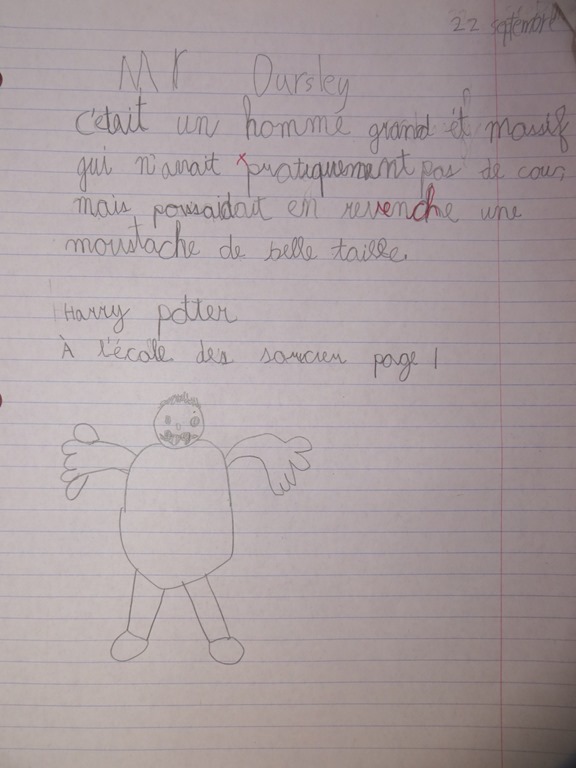 22 septembre
Mr Dursley
C'était un homme grand et massif
qui n'avait pratiquement pas de cou,
mais possaidait en revenche une
moustache de belle taille.
Harry potter
À l'école des sorcier page 1